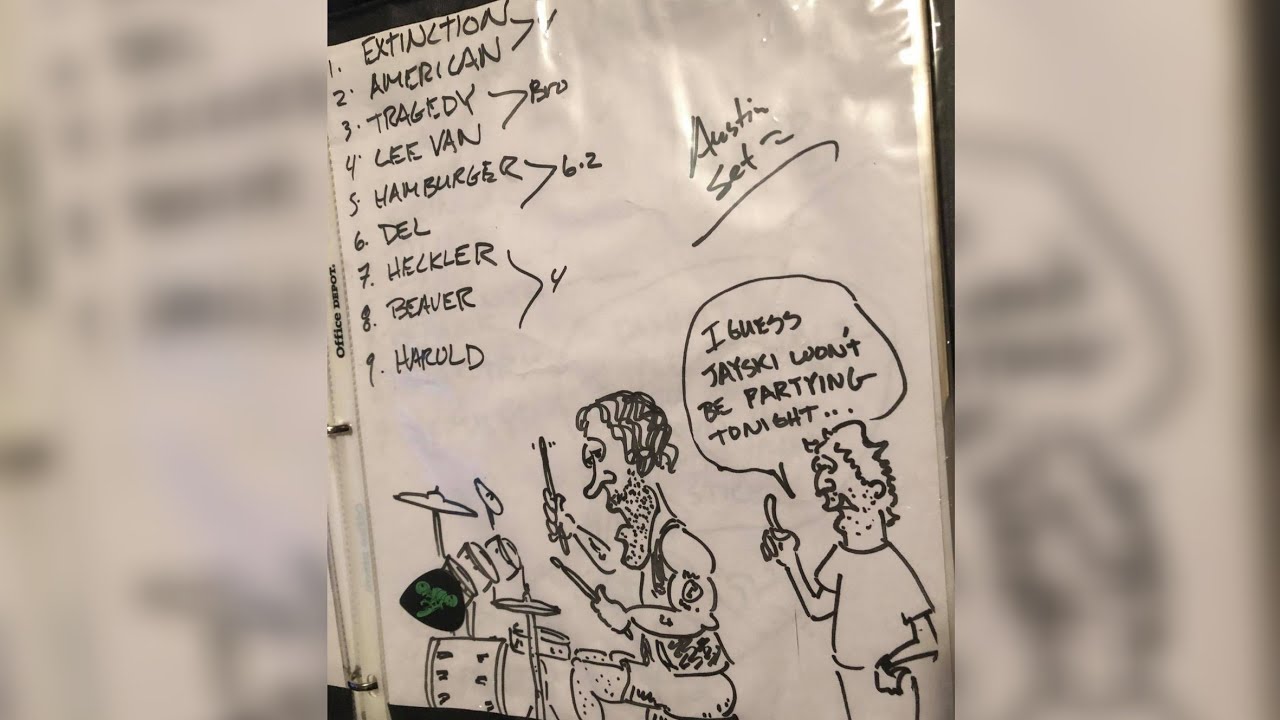 1. EXTINCTION
2. AMERICAN
3. TRAGEDY
Bro
4. LEE VAN
5. HAMBURGER
6.2
6. DEL
7. HECKLER
4
8. BEAVER
9. HAROLD
Austin
Set
Office DEPOT
I GUESS
JAYSKI WON'T
BE PARTYING
TONIGHT...